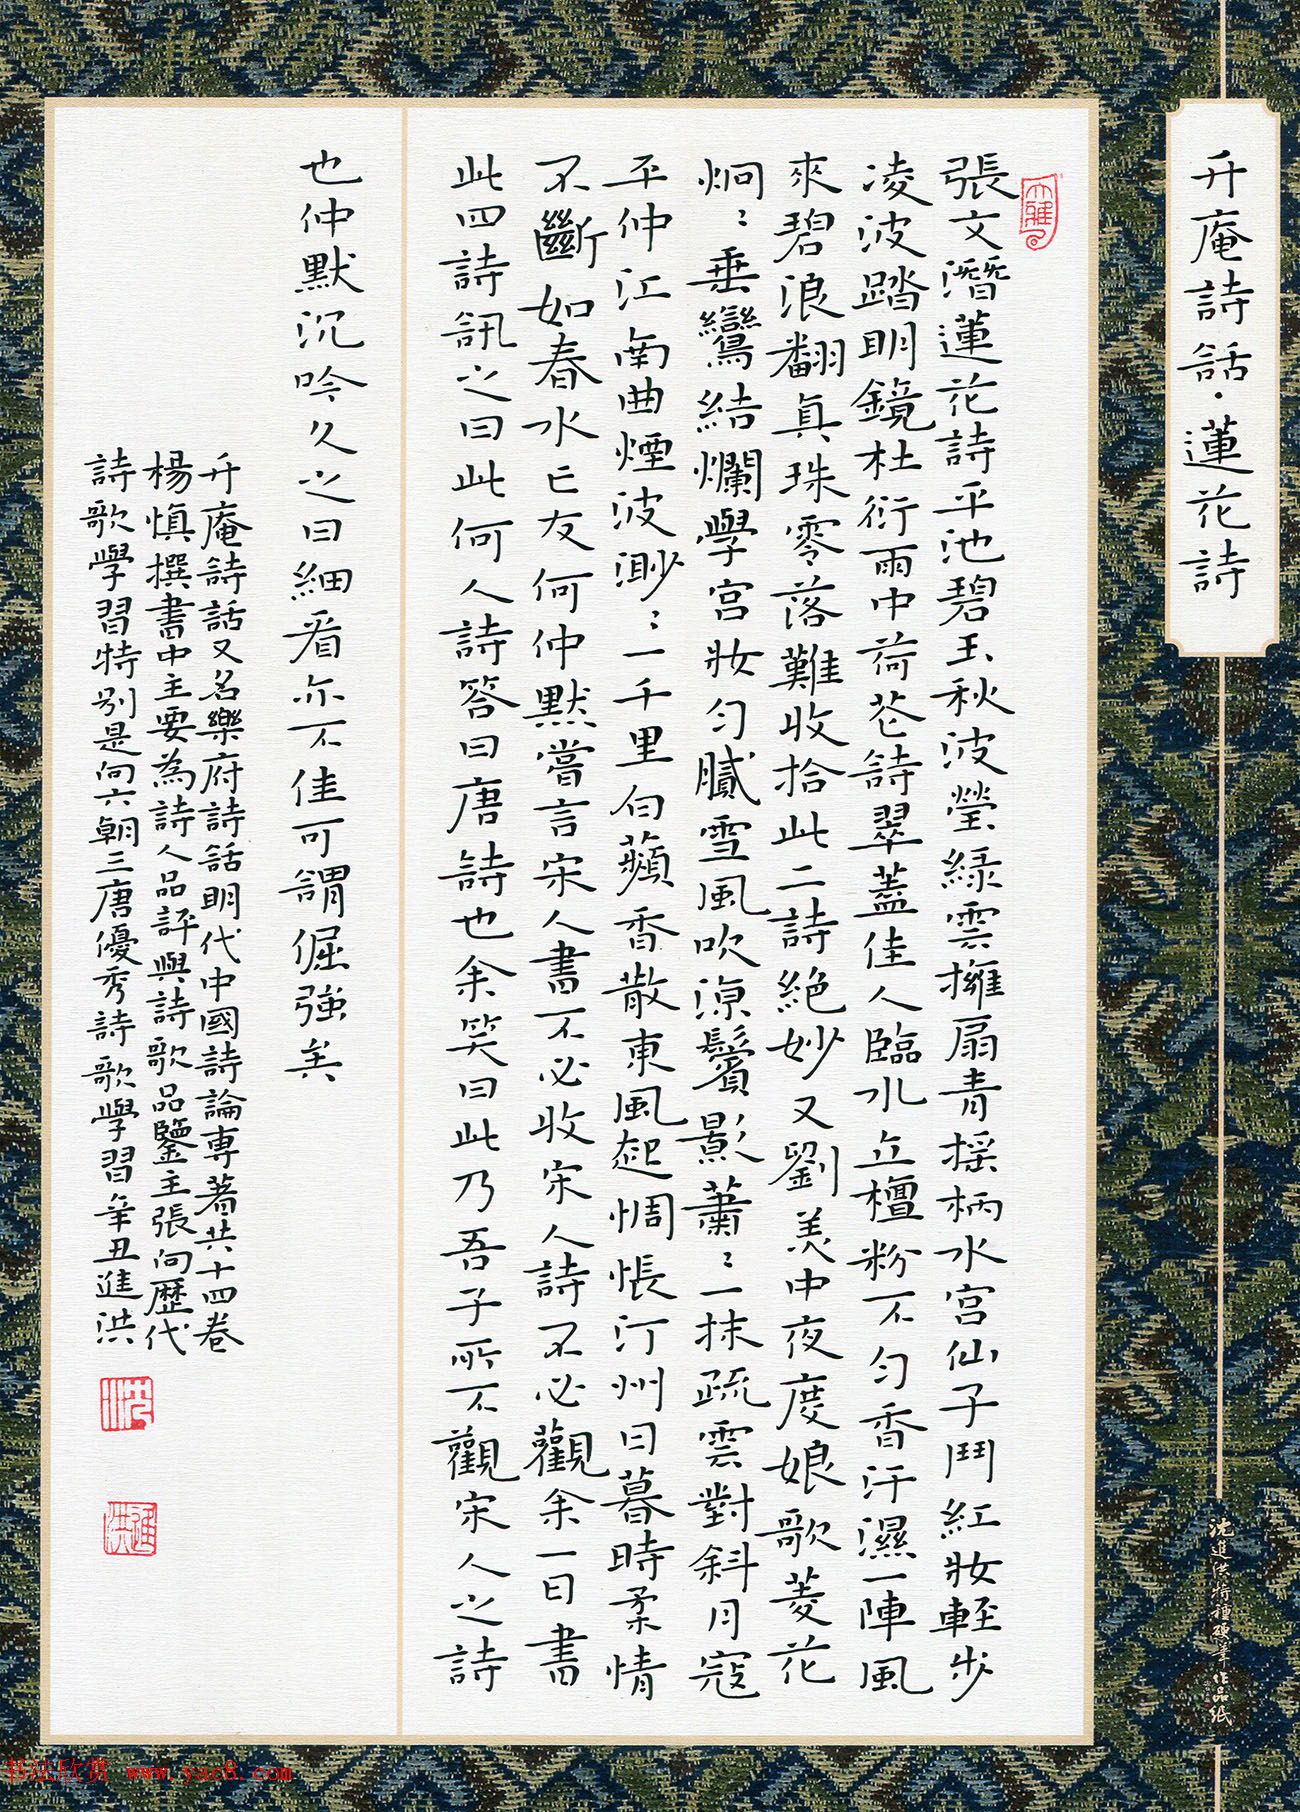 升庵詩話·蓮花詩
大雅
張文潛蓮花詩平池碧玉秋波瑩綠雲擁扇青搖柄水宮仙子鬥紅妝輕步
凌波踏明鏡杜衍雨中荷花詩翠蓋佳人臨水立檀粉不勻香汗濕一陣風
來碧浪翻真珠零落難收拾此二詩絕妙又劉美中夜度娘歌菱花
炯〻垂鸞結爛學宮妝勻膩雪風吹涼鬢影蕭〻一抹疏雲對斜月寇
平仲江南曲煙波渺〻一千里白蘋香散東風起惆悵汀州日暮時柔情
不斷如春水亡友何仲默嘗言宋人書不必收宋人詩不必觀余一日書
此四詩訊之曰此何人詩答曰唐詩也余笑曰此乃吾子所不觀宋人之詩
也仲默沉吟久之曰細看亦不佳可謂倔強矣
升庵詩話又名樂府詩話明代中國詩論專著共十四卷
楊慎撰書中主要為詩人品評與詩歌品鑒主張向歷代
詩歌學習特別是向六朝三唐優秀詩歌學習辛丑進洪
沈
進洪
沈進洪特種硬筆作品紙
书法欣赏 www.yac8.com